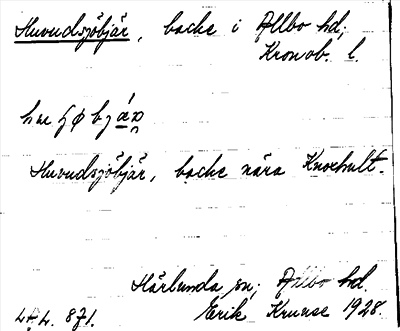 Huvudsjöbjär, backe i Allbo hd;
Kronob. l.
Huvudsjöbjär, backe nära Knoxhult.
Härlunda sn; Allbo hd.
Erik Kruuse 1928.